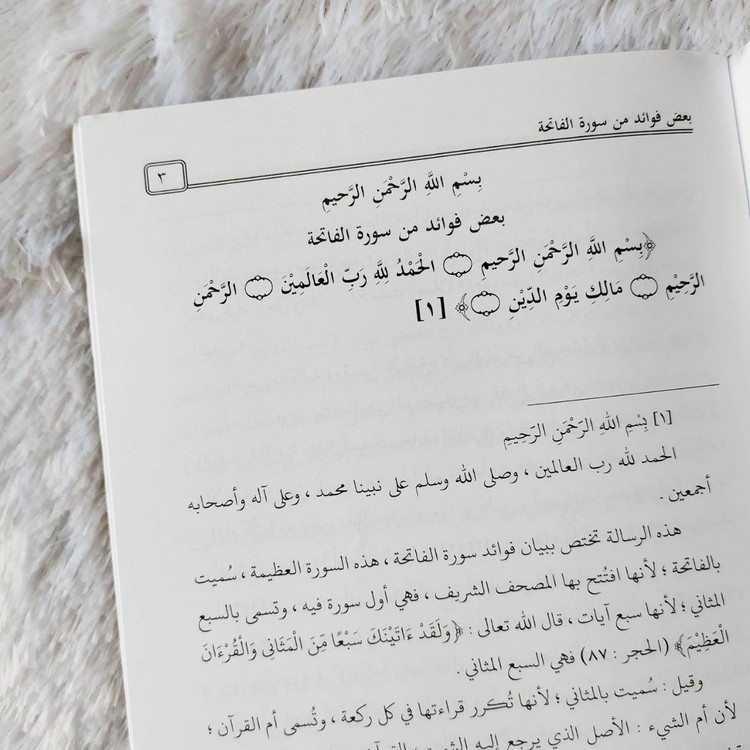 بعض فوائد من سورة الفاتحة
٣
بِسْمِ اللَّهِ الرَّحْمَنِ الرَّحِيمِ
بعض فوائد من سورة الفاتحة
﴿بِسْمِ اللَّهِ الرَّحْمَنِ الرَّحِيمِ ۝ الْحَمْدُ لِلَّهِ رَبِّ الْعَالَمِيْنَ ۝ الرَّحْمَنِ
الرَّحِيْمِ ۝ مَالِكِ يَوْمِ الدِّيْنِ ۝﴾ [١]
[١] بِسْمِ اللهِ الرَّحْمَنِ الرَّحِيمِ
الحمد لله رب العالمين ، وصلى الله وسلم على نبينا محمد ، وعلى آله وأصحابه
أجمعين .
هذه الرسالة تختص ببيان فوائد سورة الفاتحة ، هذه السورة العظيمة ، سُميت
بالفاتحة ؛ لأنها افتُتح بها المصحف الشريف ، فهي أول سورة فيه ، وتسمى بالسبع
المثاني ؛ لأنها سبع آيات ، قال الله تعالى : ﴿وَلَقَدْ ءَاتَيْنَكَ سَبْعًا مِّنَ الْمَثَانِي وَالْقُرْءَانَ
الْعَظِيْمَ﴾ (الحجر : ٨٧) فهي السبع المثاني .
وقيل : سُميت بالمثاني ؛ لأنها تُكرر قراءتها في كل ركعة ، وتُسمى أم القرآن ؛
لأن أم الشيء : الأصل الذي يرجع إليه